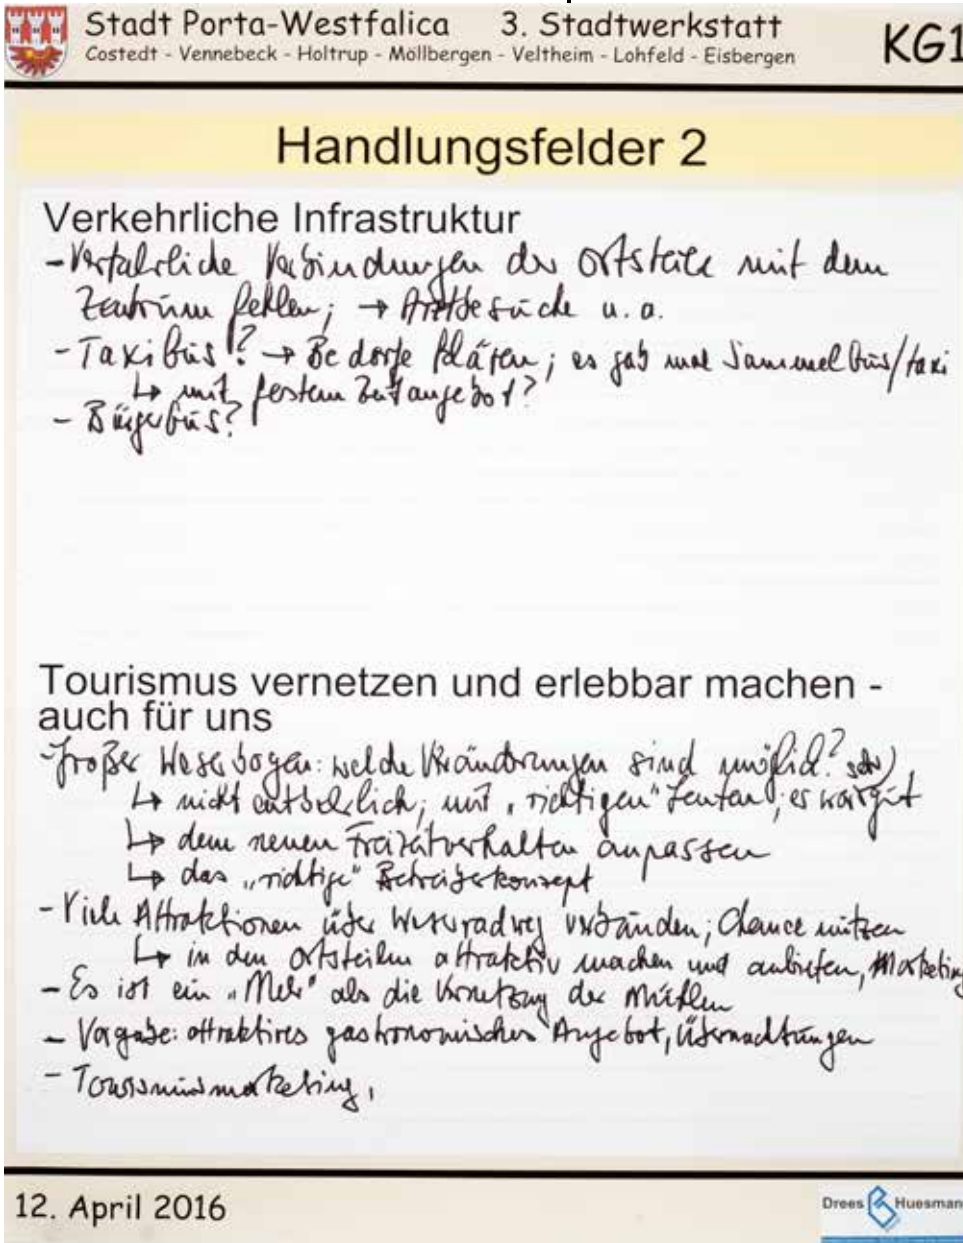 Stadt Porta-Westfalica 3. Stadtwerkstatt
Costedt - Vennebeck - Holtrup - Möllbergen - Veltheim - Lohfeld - Eisbergen
KG1
Handlungsfelder 2
Verkehrliche Infrastruktur
- Verkehrliche Verbindungen der Ortsteile mit dem
Zentrum fehlen; → Arztbesuche u. a.
- Taxibus!? → Bedarfe klären; es gab mal Sammelbus/taxi
↳ mit festem Zeitangebot?
- Bürgerbus?
Tourismus vernetzen und erlebbar machen -
auch für uns
- Großer Weserbogen: welche Veränderungen sind möglich?
↳ nicht entbehrlich; mit „richtigen" Leuten; es war gut
↳ dem neuen Freizeitverhalten anpassen
↳ das „richtige" Betreiberkonzept
- Viele Attraktionen über Weserradweg verbänden; Chance nützen
↳ in den Ortsteilen attraktiv machen und anbieten, Marketing
- Es ist ein „Mehr" als die Vernetzung der Mühlen
- Vorgabe: attraktives gastronomisches Angebot, Übernachtungen
- Tourismusmarketing,
12. April 2016
Drees Huesman